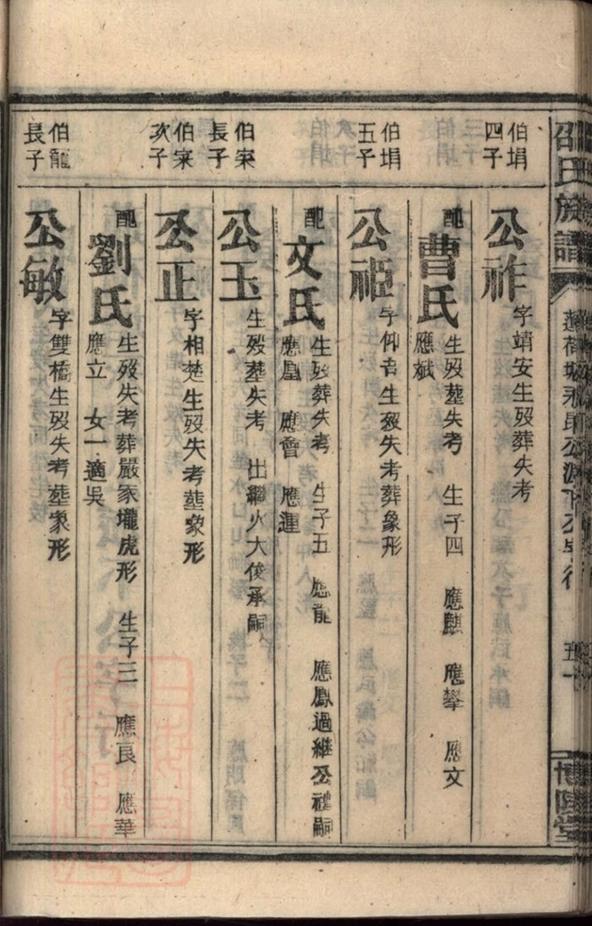 邵氏族譜
五十
博陵堂
伯埍
四子
公祚 字靖安生歿葬失考
配曹氏 生歿葬失考 生子四 應麒 應舉 應文
應斌
伯埍
五子
公姬 字仰吉生歿失考葬象形
配文氏 生歿葬失考 生子五 應龍 應鳳過繼公祚嗣
應凰 應會 應運
伯寀
長子
公玉 生歿葬失考 出繼大俊承嗣
伯寀
次子
公正 字相楚生歿失考葬象形
配劉氏 生歿失考葬嚴家壠虎形 生子三 應良 應華
應立 女一適吳
伯龍
長子
公敏 字雙橋生歿失考葬象形